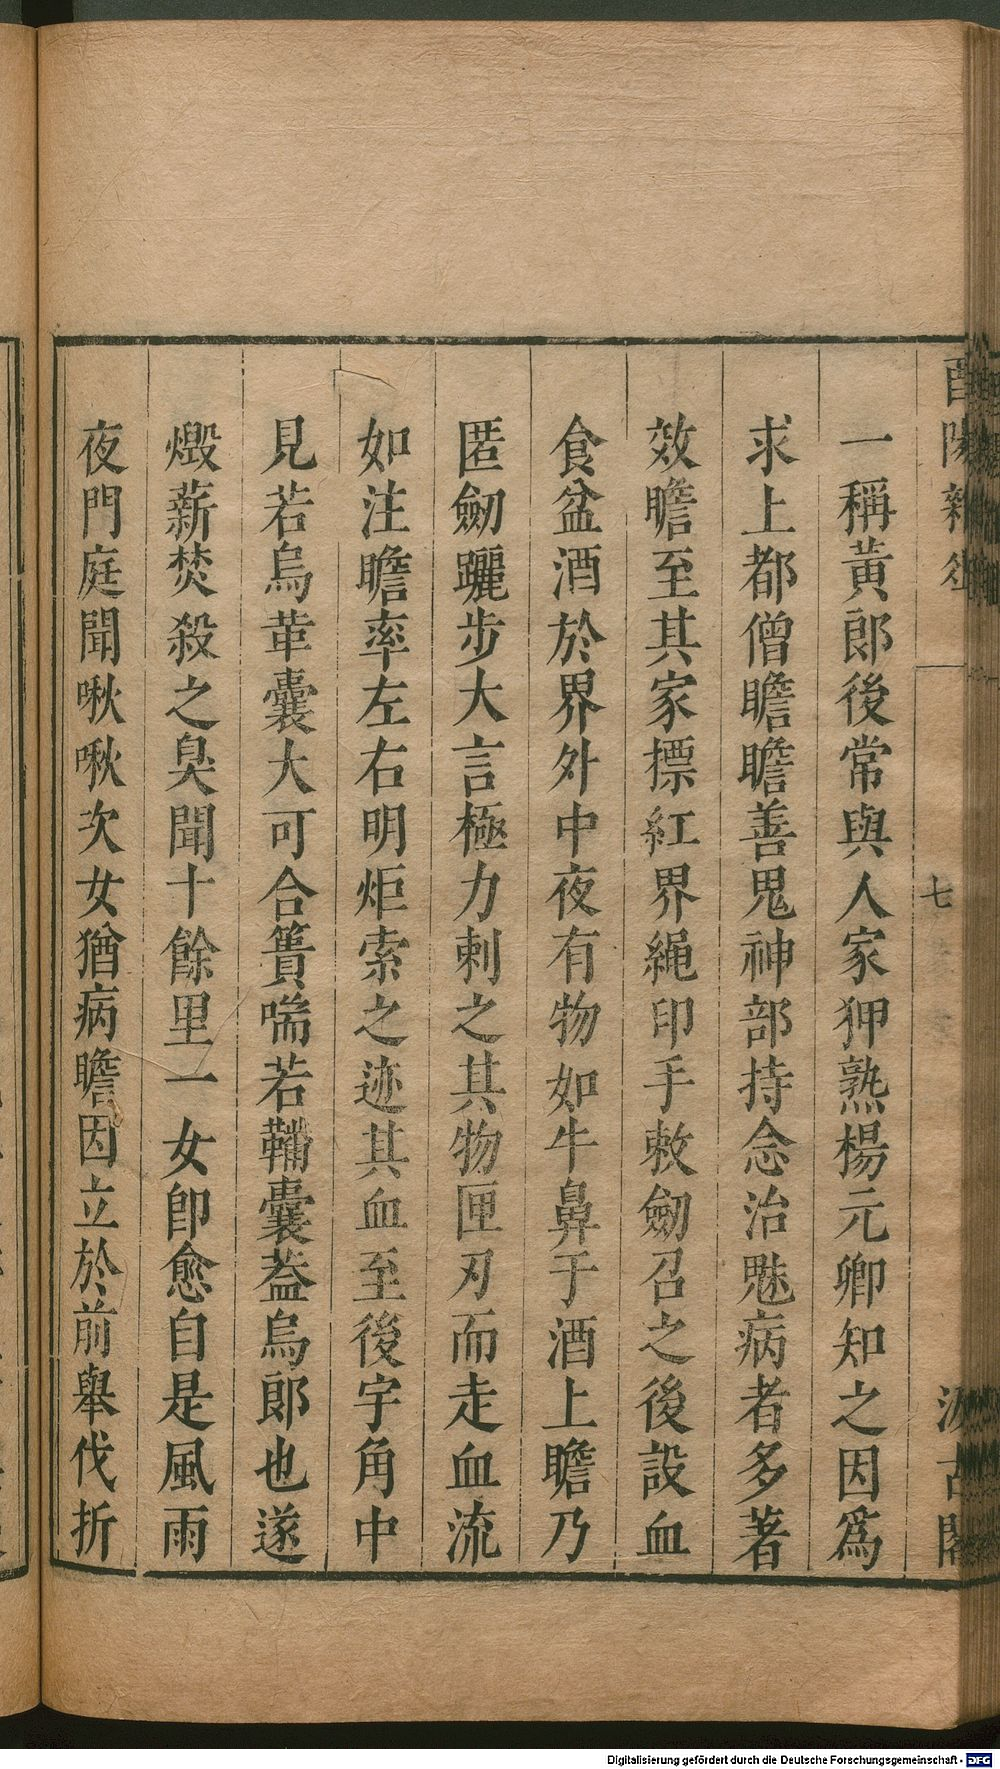 酉陽雜俎
七
汲古閣
一稱黃郎後常與人家狎熟楊元卿知之因爲
求上都僧瞻瞻善鬼神部持念治魅病者多著
效瞻至其家摽紅界繩印手敕劒召之後設血
食盆酒於界外中夜有物如牛鼻于酒上瞻乃
匿劒躧步大言極力刺之其物匣刃而走血流
如注瞻率左右明炬索之迹其血至後宇角中
見若烏革囊大可合簣喘若鞴囊葢烏郎也遂
燬薪焚殺之臭聞十餘里一女卽愈自是風雨
夜門庭聞啾啾次女猶病瞻因立於前舉伐折
Digitalisierung gefördert durch die Deutsche Forschungsgemeinschaft - DFG